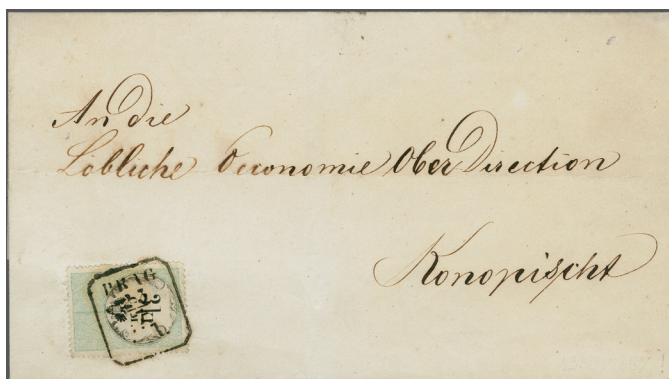 An die
Löbliche Oeconomie Ober Direction
Konopischt
PRAG